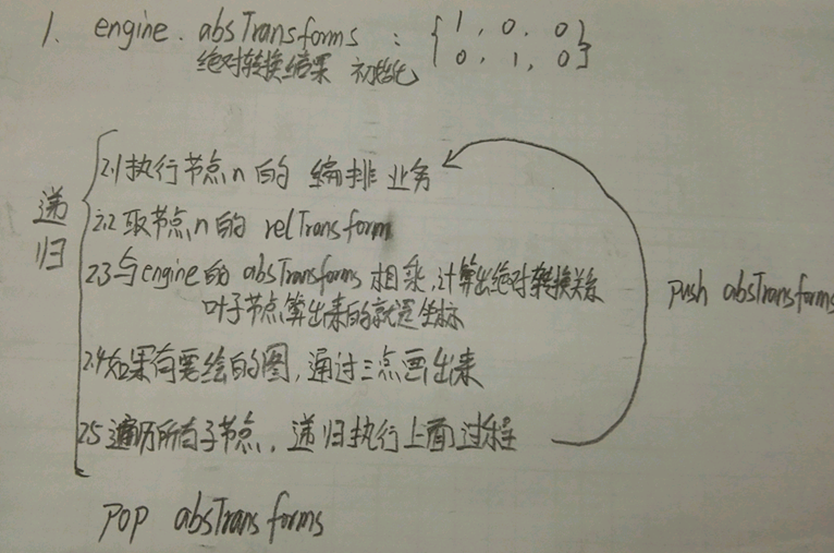 1. engine.absTransforms : {1, 0, 0
0, 1, 0}
绝对转换结果 初始化
递归
2.1 执行节点n的 编排业务
2.2 取节点n的 relTransform
2.3 与engine的 absTransforms 相乘,计算出绝对转换关系
叶子节点算出来的就是坐标
2.4 如果有要绘的图,通过三点画出来
2.5 遍历所有子节点,递归执行上面过程
push absTransforms
pop absTransforms